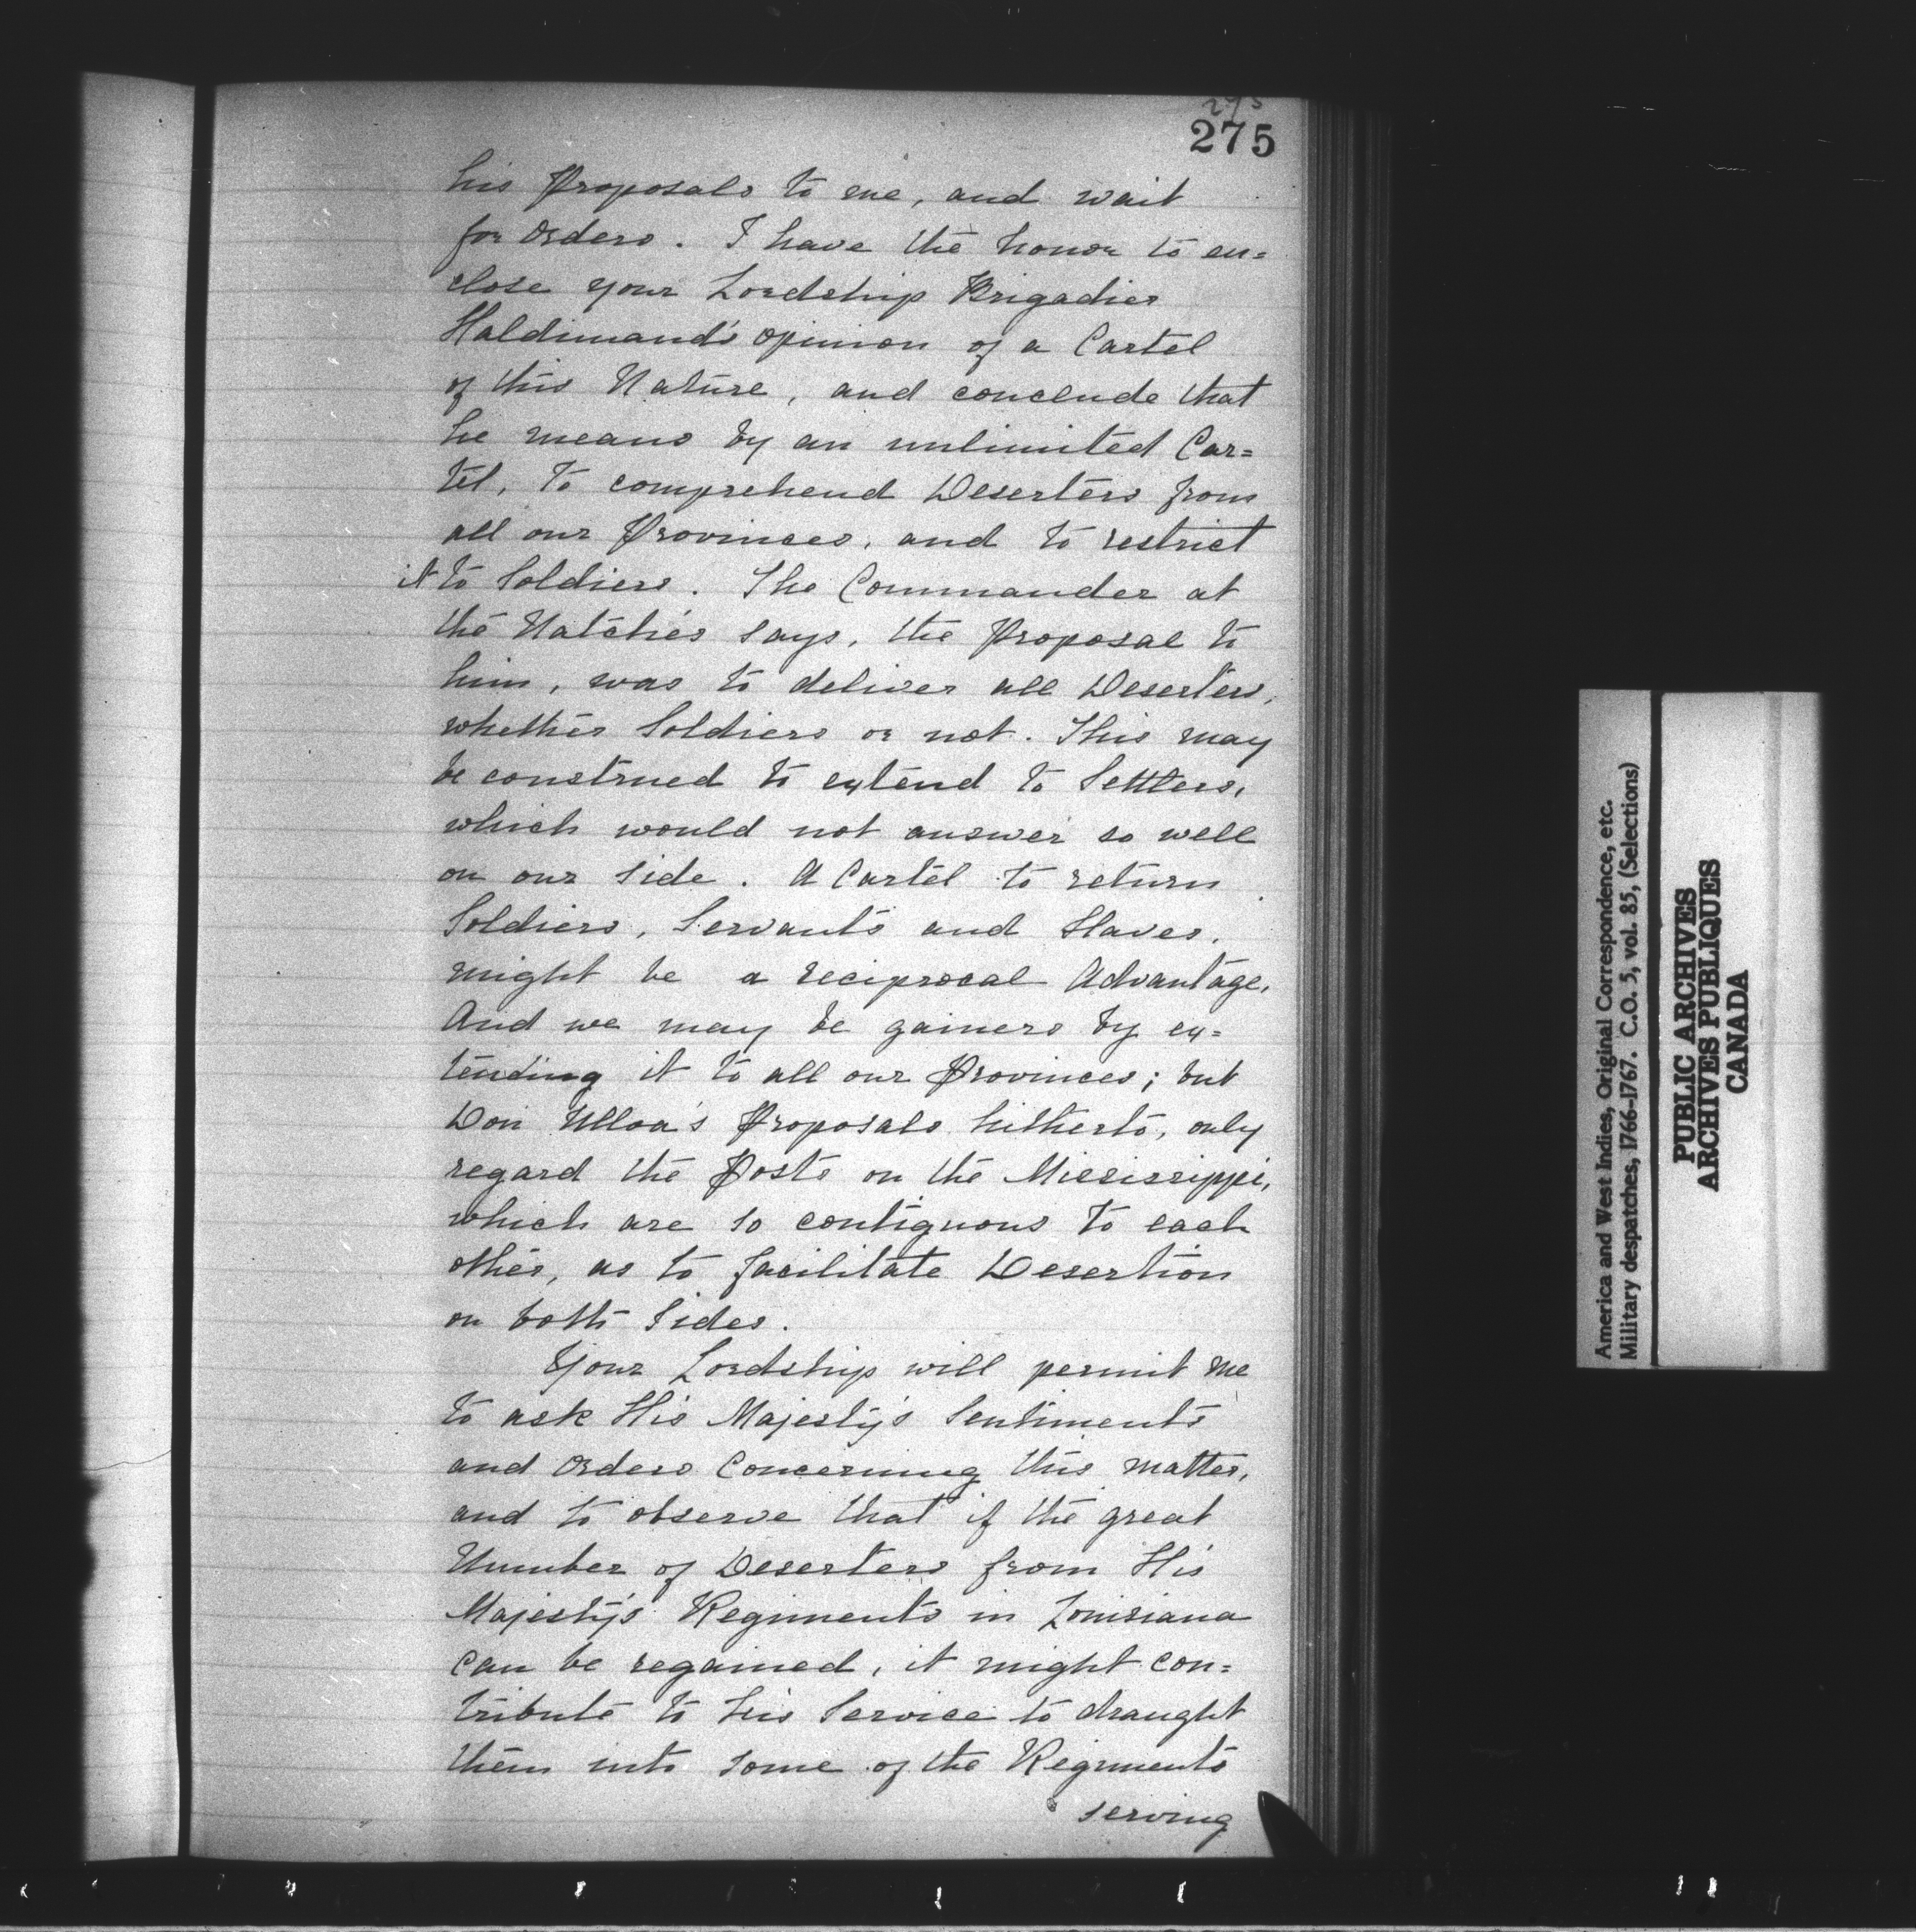 275
275
his Proposals to me, and wait
for Orders. I have the honor to en=
close your Lordship Brigadier
Haldimand's opinion of a Cartel
of this Nature, and conclude that
he means by an unlimited Car=
tel, to comprehend Deserters from
all our Provinces, and to restrict
it to Soldiers. The Commander at
the Natchés says, the Proposal to
him, was to deliver all Deserters,
whether Soldiers or not. This may
be construed to extend to Settlers,
which would not answer so well
on our side. A Cartel to return
Soldiers, Servants and Slaves,
might be a reciprocal Advantage,
And we may be gainers by ex=
tending it to all our Provinces; but
Don Ulloa's Proposals hitherto, only
regard the Posts on the Mississippi,
which are so contiguous to each
other, as to facilitate Desertion
on both Sides.
Your Lordship will permit me
to ask His Majesty's Sentiments
and Orders Concerning this matter,
and to observe that if the great
Number of Deserters from His
Majesty's Regiments in Louisiana
can be regained, it might con=
tribute to his Service to draught
them into some of the Regiments
serving
America and West Indies, Original Correspondence, etc.
Military despatches, 1766-1767. C.O. 5, vol. 85, (Selections)
PUBLIC ARCHIVES
ARCHIVES PUBLIQUES
CANADA